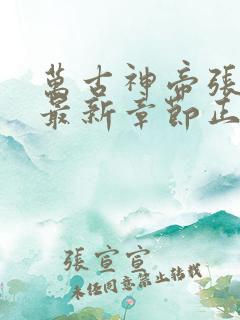 萬古神帝張
最新章節正
張宣宣
未經同意禁止轉載